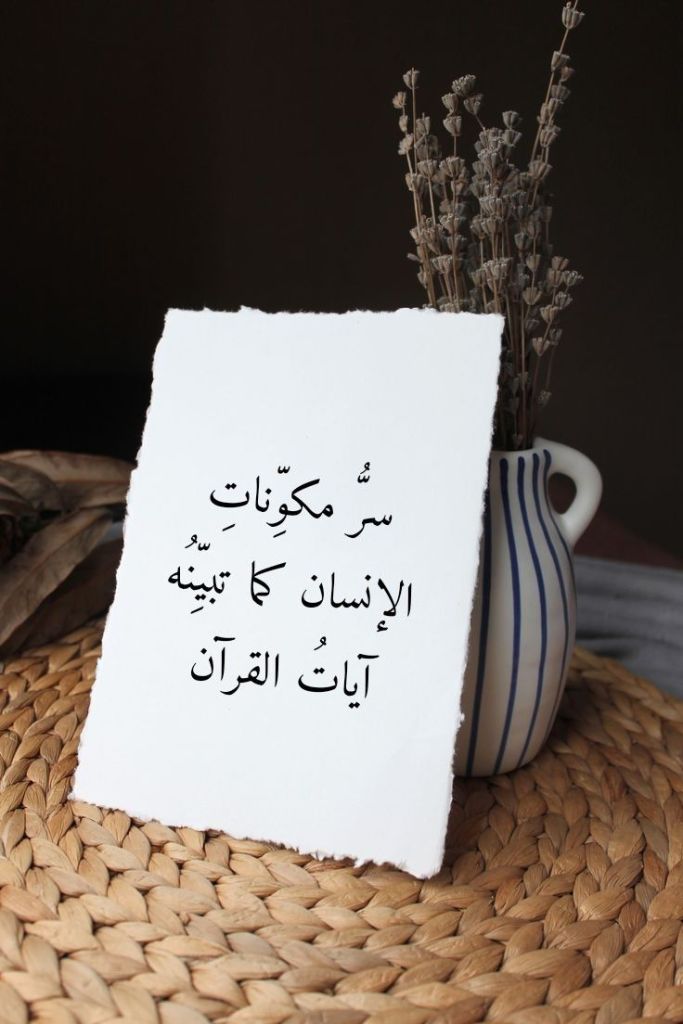 سرُّ مكوِّناتِ
الإنسان كما تبيِّنُه
آياتُ القرآن